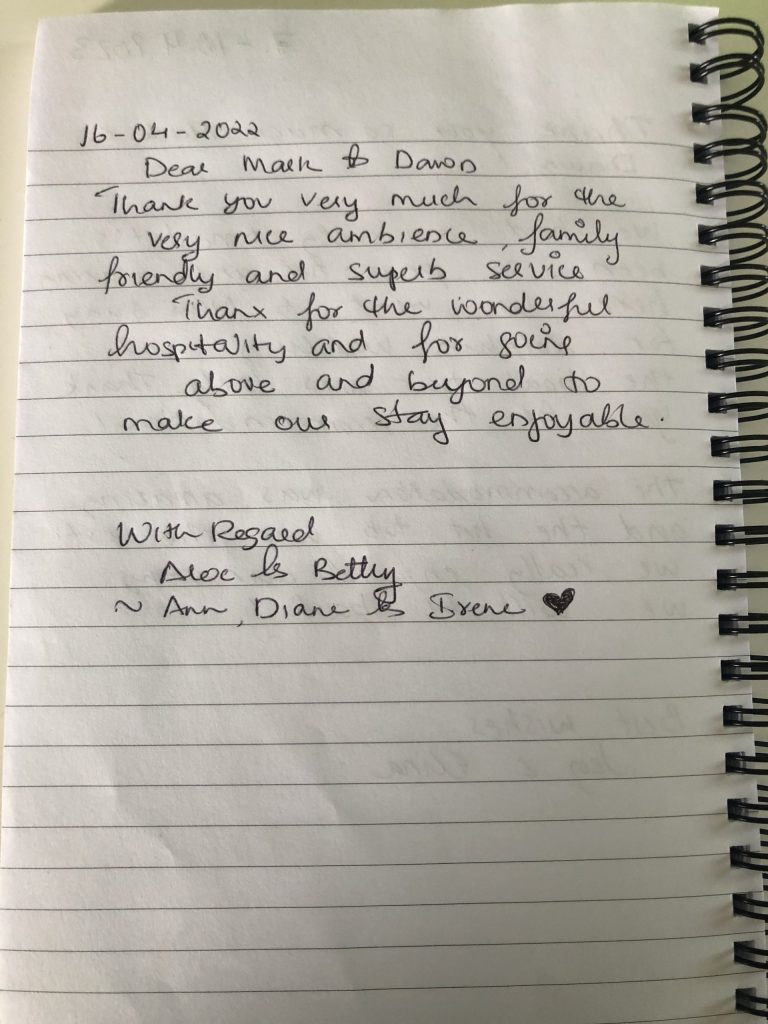 16-04-2022
Dear Mark & Dawn
Thank you very much for the
very nice ambience, family
friendly and superb service
Thanx for the wonderful
hospitality and for going
above and beyond to
make our stay enjoyable.
With Regard
& Betty
~ Ann, Diane & Irene ♥